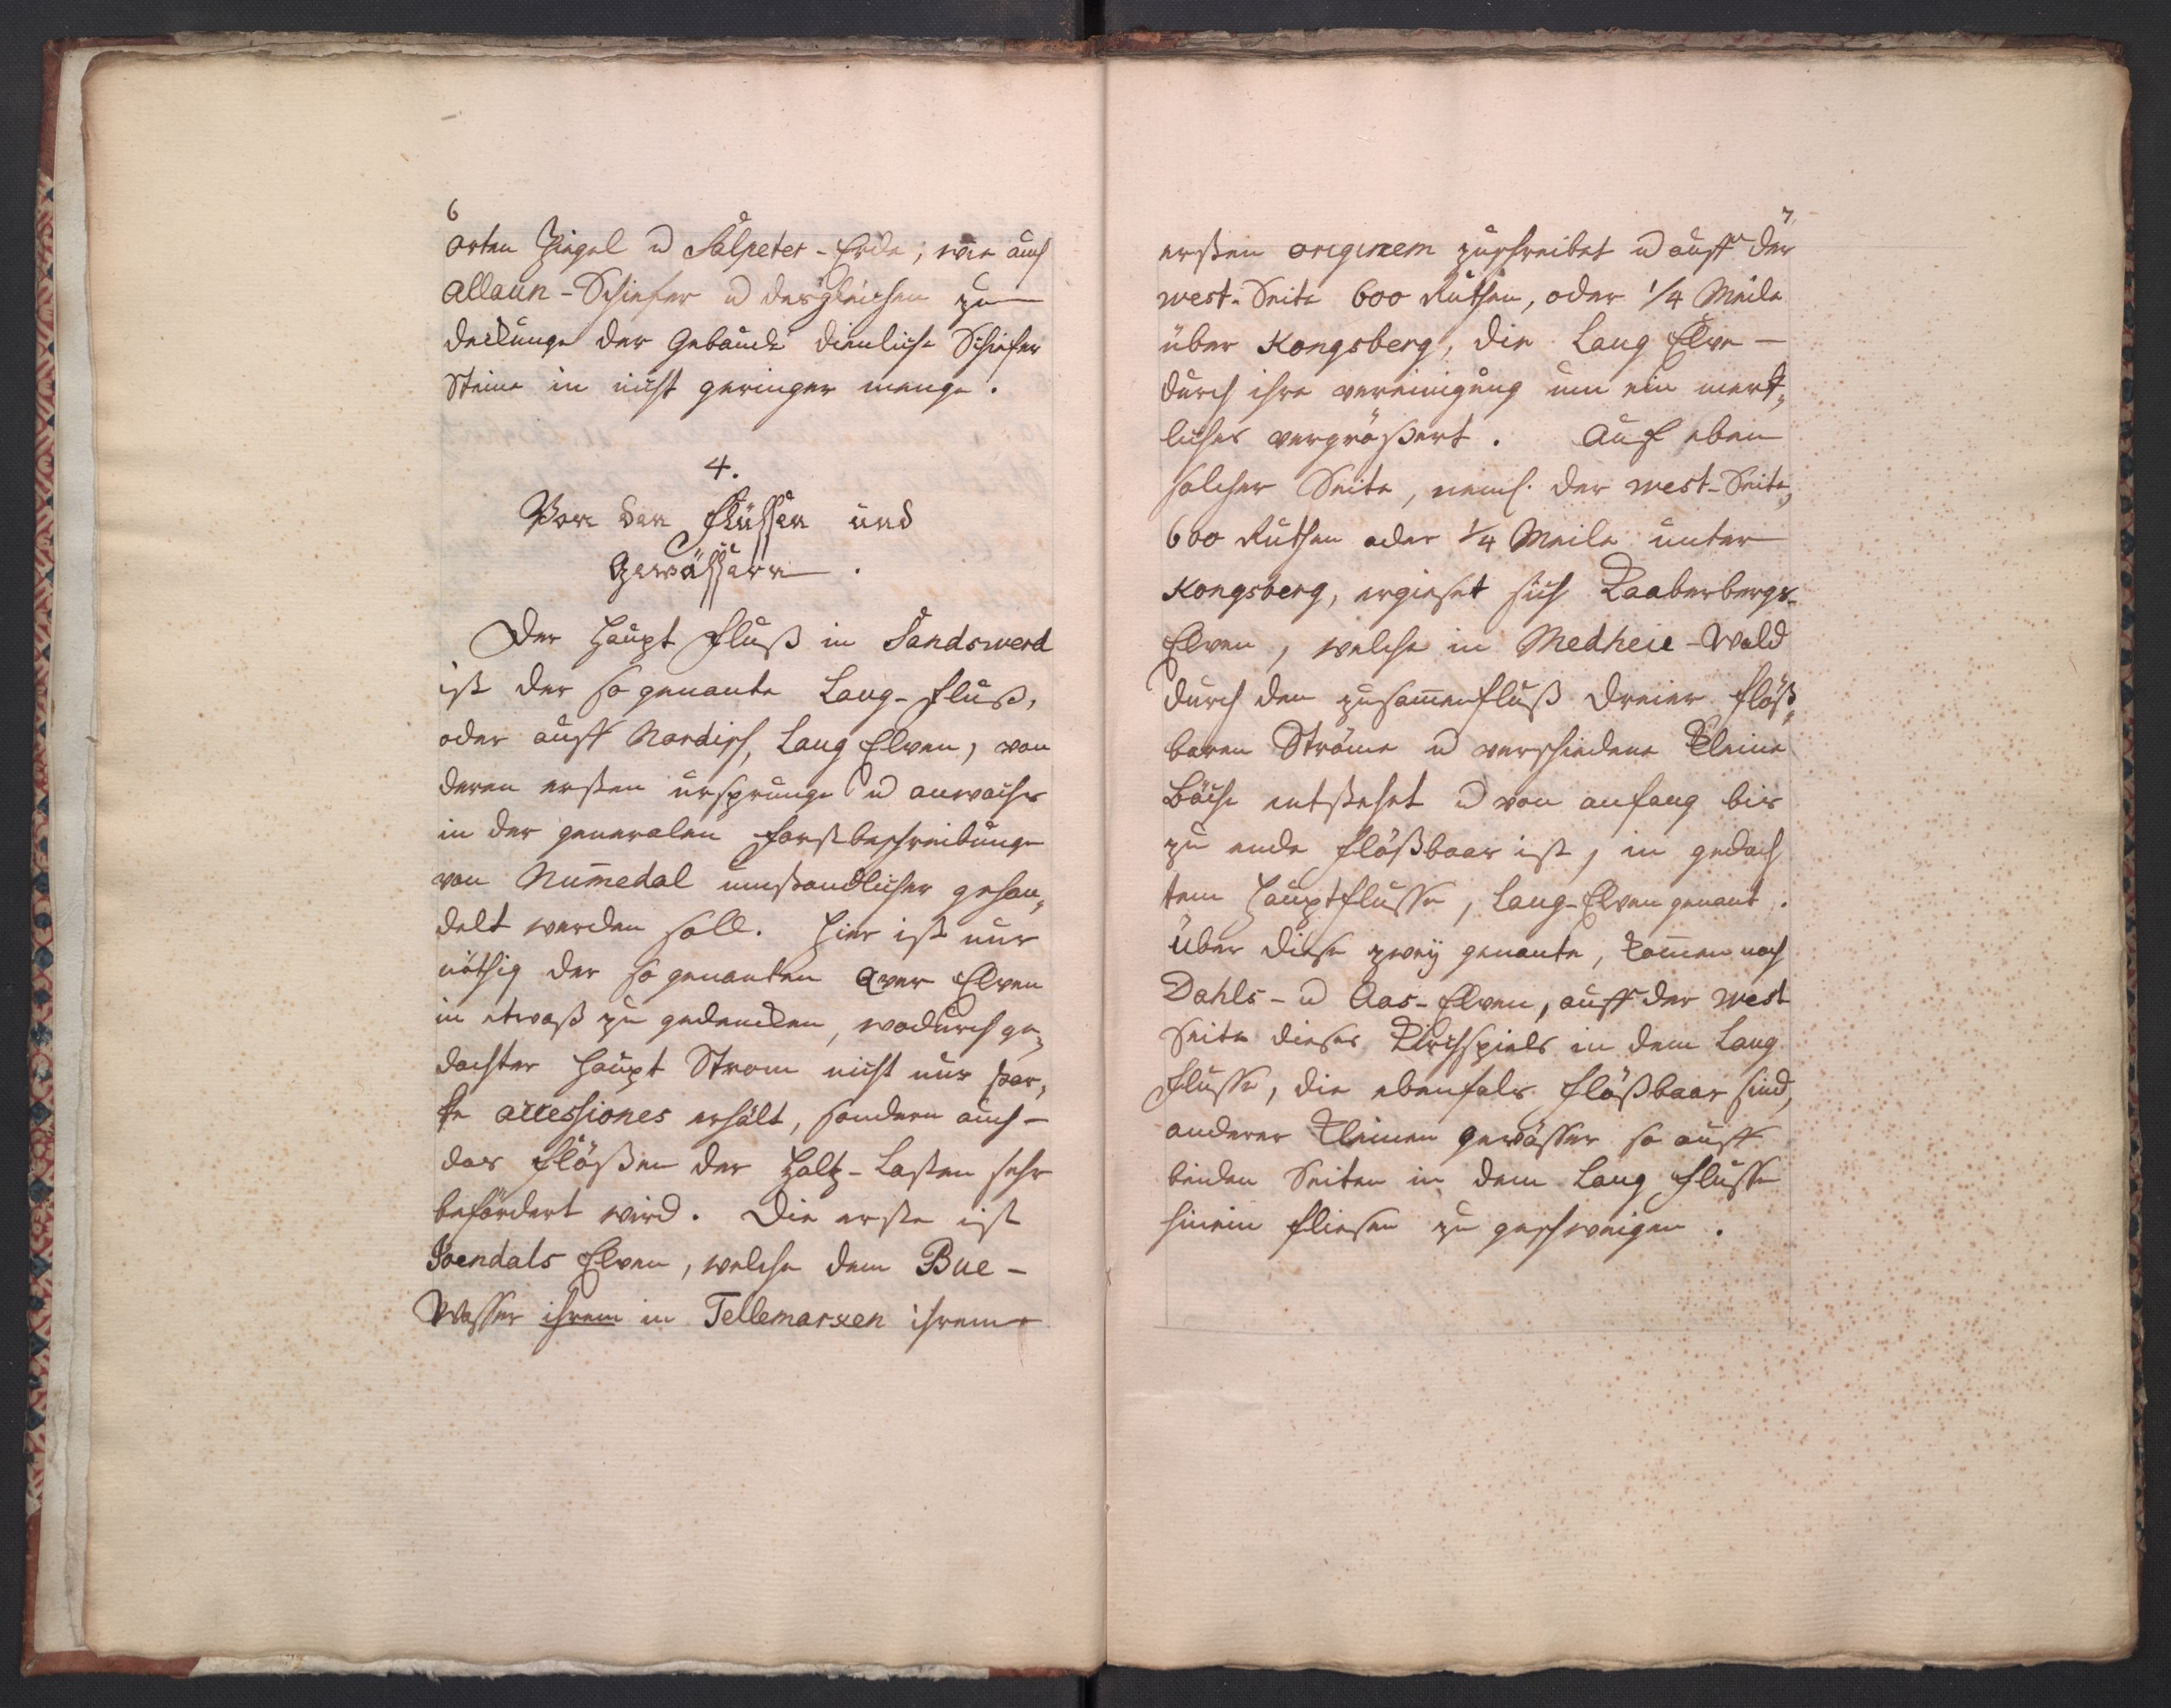 6
orten Ziegel u Salpeter-Erde; wie auch
Allaun-Schiefer u dergleichen zu
deckunge der Gebäude dienliche Schiefer
Steine in nicht geringer menge.
4.
Von den Flüssen und
Gewässern.
Der Haupt Fluß in Sandswerd
ist der so genante Laug-Fluß,
oder auff Nordisch, Laug Elven, von
deren ersten ursprunge u anwachs
in der generalen Forstbeschreibunge
von Numedal umständlicher gehan„
delt werden soll. Hier ist nur
nöthig der so genanten Qver Elven
in etwaß zu gedencken, wodurch ge„
dachter Haupt Strom nicht nur star„
ke accessiones erhält, sondern auch -
das flößen der Holtz-Lasten sehr
befördert wird. Die erste ist
Joendals Elven, welche dem Bue -
Wasser ihrem in Tellemarken ihrem
7.
ersten originem zuschreibet u auff der
west-Seite 600 Ruthen, oder 1/4 Meile
über Kongsberg, die Laug Elve -
durch ihre vereinigung um ein merk„
liches vergrößert. Auf eben
solcher Seite, neml. der west-Seite,
600 Ruthen oder 1/4 Meile unter
Kongsberg, ergieset sich Kaaberbergs-
Elven, welche in Medheie-Wald
durch den zusamenfluß dreier flöß„
baren Ströme u verschiedene kleine
Bäche entstehet u von anfang bis
zu ende flößbaar ist, in gedach
tem Hauptflusse, Laug-Elven genant.
Über diese zweÿ genante, komen noch
Dahls- u Aas-Elven, auff der west
Seite dieses Kirchspiels in dem Laug
Flusse, die ebenfals flößbaar sind,
anderer kleinen gewässer so auff
beiden Seiten in dem Laug Flusse
hinein fliesen zu geschweigen.